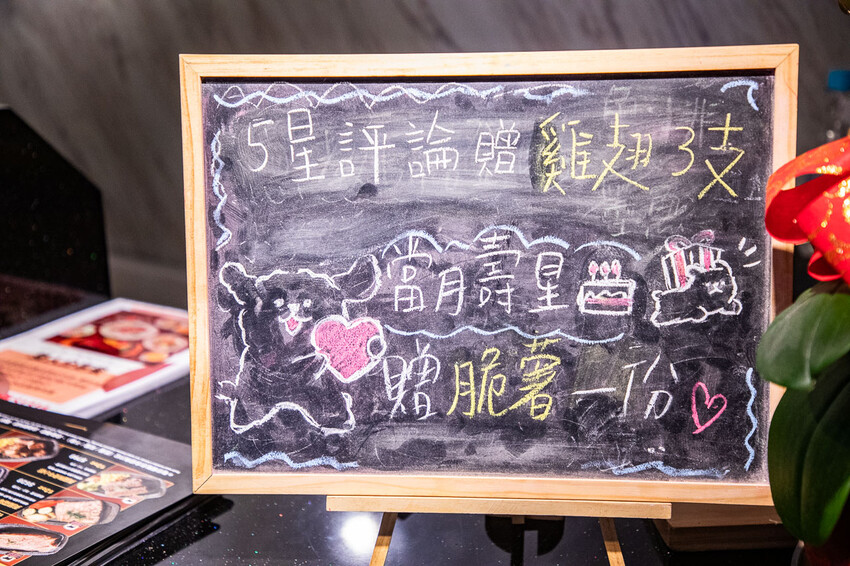 5星評論贈雞翅3支
當月壽星
贈脆薯一份